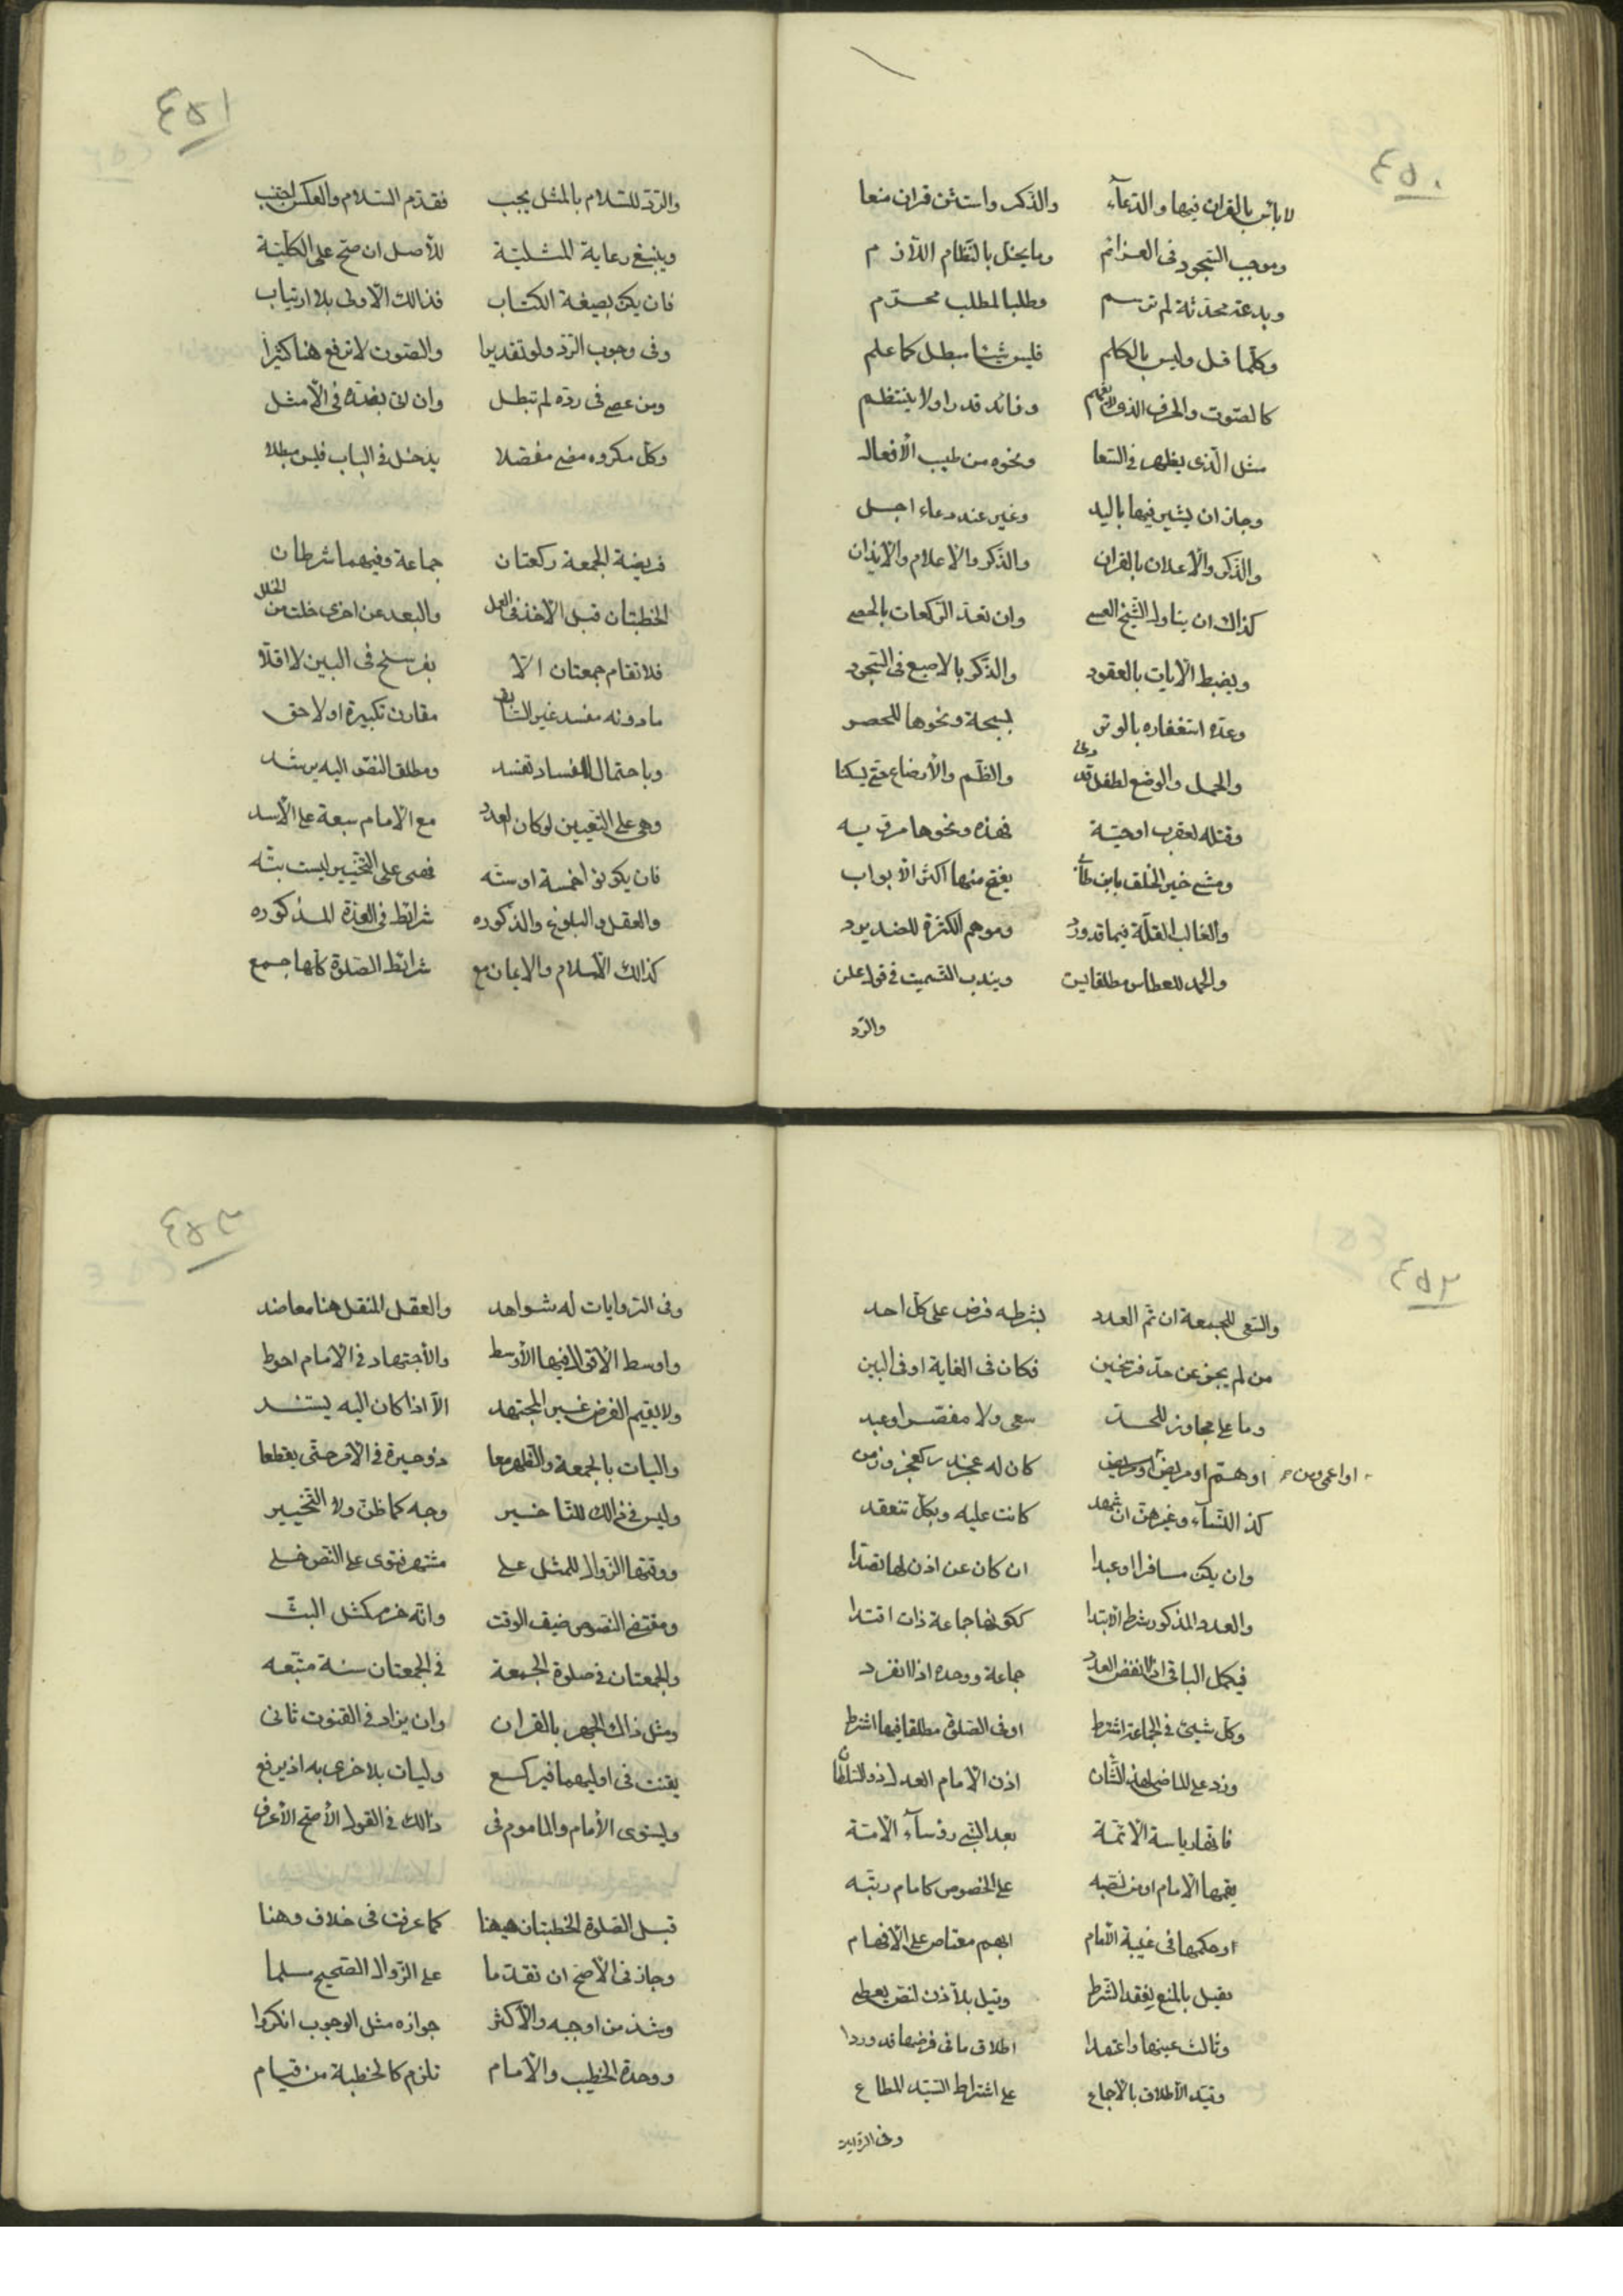 ٤٥٠
لا بأس بالقران فيها والدعآء والذكر واستثن قران منعا
وموجب السجود في العزائم وما يخل بالنظام اللازم
وبدعة محدثة لم ترسم وطلبا لمطلب محرم
وكلما قل وليس بالكلم فليس شيئا مبطل كما علم
كالصوت والحرف الذي وفائد قدرا ولا ينتظم
مثل الذي يظهر في السعا ونحوه من طيب الأفعال
وجاز ان يشير فيها باليد وغير عند دعاء اجل
والذكر والأعلان بالقران والذكر والاعلام والايذان
كذاك ان يناول الشيخ العصى وان تعد الركعات بالحصى
ويضبط الايات بالعقود والذكر بالاصبع في السجود
وعده استغفاره بالوتر بسبحة ونحوها للحصر
والحمل والوضع لطفل قد والضم والأرضاع حتى يسكنا
وقتله لعقرب اوحية فهذه ونحوها مرقيه
ومشى خير الخلق بابن طاب يفتح منها اكثر الأبواب
والغالب القلة فيما قدورد وموهم الكثرة للضد يرد
والحمد للعطاس مطلقا يسن ويندب التسميت في قول علن
والرد
٤٥١
والرد للسلام بالمثل يجب فقدم السلام والعكس اجتنب
وينبغي رعاية المثلية للأصل ان صح على الكلية
فان يكن بصيغة الكتاب فذالك الأولى بلا ارتياب
وفى وجوب الرد ولو تقديرا والصوت لا ترفع هنا كثيرا
ومن عصى في رده لم تبطل وان اتى بضده في الأمثل
وكل مكروه مضى مفصلا يدخل في الباب فليس مبطلا
فريضة الجمعة ركعتان جماعة وفيهما شرطان
الخطبتان قبل الأخذ في العمل والبعد عن اخرى خلت من الخلل
فلا تقام جمعتان الا بفرسخ في البين لا اقلا
ما دونه مفسد غير السابق مقارن تكبيرة او لاحق
وباحتمال الفساد تفسد ومطلق النص اليه يرشد
وهي على التعيين لو كان العدد مع الامام سبعة على الأسد
فان يكونوا خمسة اوسته فهى على التخيير ليست بته
والعقل والبلوغ والذكوره شرائط في العدة المذكوره
كذالك الأسلام والايمان مع شرائط الصلوة كلها جمع
٤٥٢
والسعى للجمعة ان تم العدد بشرطه فرض على كل احد
من لم يجز عن حد فرسخين فكان في الغاية او في البين
وما على مجاوز للحد سعى ولا مفصر اوعبد
او اعمى ومن
او هم او مريض كان له عجز
كذا النساء وغيرهن ان شهد كانت عليه وبكل تنعقد
وان يكن مسافرا اوعبدا ان كان عن اذن لها تصدا
والعدد المذكور شرط الابتدا ككونها جماعة ذات اقتدا
فيكمل الباقي اذا انفض العدد جماعة ووحده اذا انفرد
وكل شيئ في الجماعة اشترط او في الصلوة مطلقا فيها اشترط
وزد على الماضى لهذا الشان اذن الامام العدل ذو السلطان
فانها رياسة الائمة بعد النبي رؤسآء الامة
يقيمها الامام او من نصبه على الخصوص كامام رتبه
او حكمها في غيبة الامام ابهم معتاص على الافهام
فقيل بالمنع لفقد الشرط وقيل بلا ذن لنص يعطى
وثالث عينها واعتمدا اطلاق ما في فرضها قد وردا
وقيد الأطلاق بالاجماع على اشتراط السيد المطاع
وفى الرواية
٤٥٣
وفى الروايات له شواهد والعقل للنقل هنا معاضد
واوسط الاقوال فيها الأوسط والأجتهاد في الامام احوط
ولا يقيم الفرض غير المجتهد الا اذا كان اليه يستند
واليات بالجمعة والظهر معا ذو حيرة في الأمر حتى يقطعا
وليس في ذالك للتاخير وجه كما ظن ولا التخيير
ووقتها الزوال للمثل على مشتهر فتوى على النص خلى
ومقتضى النصوص ضيق الوقت وانه خرم كمثل البت
والجمعتان في صلوة الجمعة في الجمعتان سنة متبعه
ومثل ذاك الجهر بالقران وان يزاد في القنوت ثانى
يقنت في اوليهما فيركع وليات بلاخرى به اذ يرفع
ويستوى الأمام والماموم فى ذالك في القول الأصح الأعرف
قبل الصلوة الخطبتان هيهنا كما عرفت في خلاف وهنا
وجاز في الأصح ان تقدما على الزوال الصحيح سلما
وشذ من اوجبه والأكثر جوازه مثل الوجوب انكروا
ووحدة الخطيب والامام تلزم كالخطبة من قيام